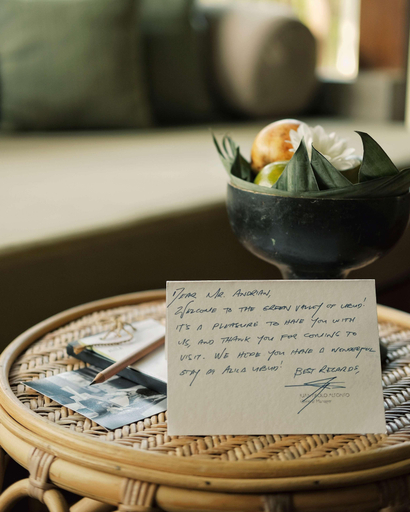 Dear Mr. Andrian,
Welcome to the green valley of Ubud!
It's a pleasure to have you with
us, and thank you for coming to
visit. We hope you have a wonderful
stay at Alila Ubud! Best Regards,